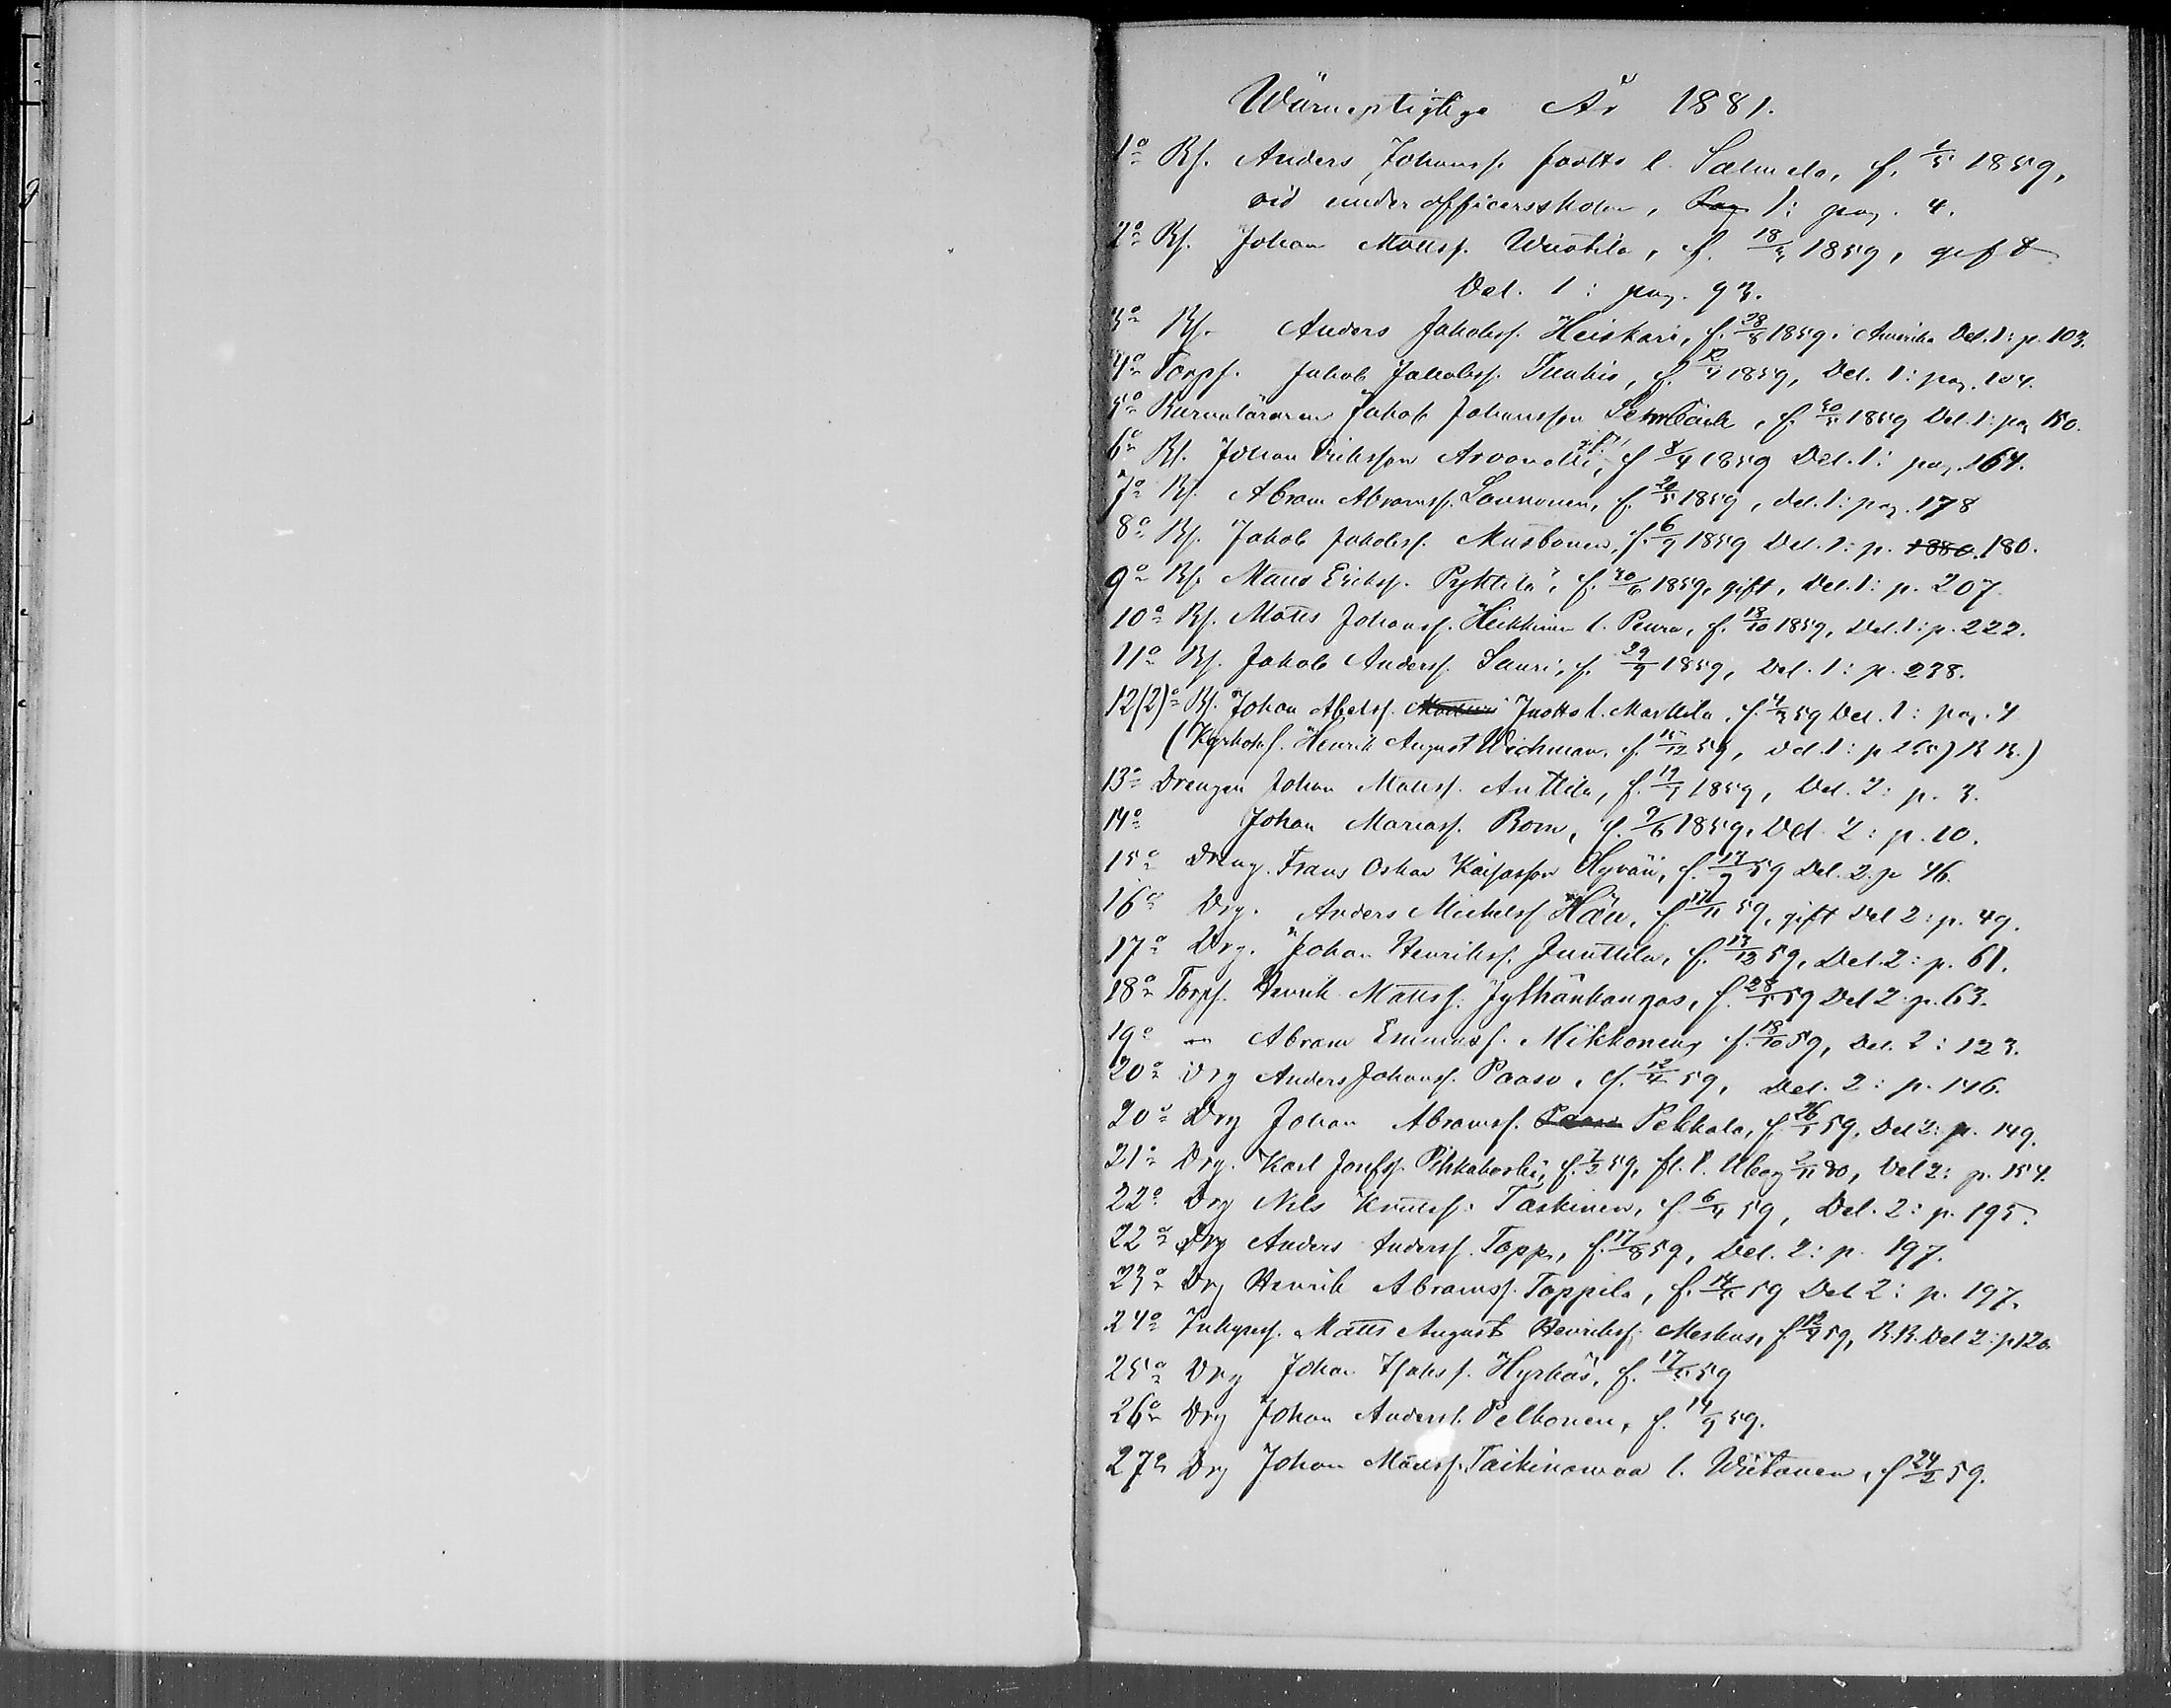 Wärnepligtige År 1881.
1o Bs. Anders Johanss. Juotto l. Salmela, f. 1/5 1859,
vid underofficersskolan, Pag 1: pag. 4.
2o Bs. Johan Mattss. Wuotila, f. 18/3 1859, gift
Del. 1: pag. 93.
3o Bs. Anders Jakobss. Heiskari, f. 28/8 1859. Amerika Del. 1: p. 103.
4o Torps. Jakob Jakobss. 1859, Del. 1: pag. 104.
5o Barnaläraren Jakob Johansson f. 30/5 1859 Del. 1: pag 150.
6o Bs. Johan Eriksson f 8/4 1859 Del. 1: pag. 164.
7o Bs. Abram Abramss. f. 20/5 1859, Del. 1: pag. 178
8o Bs. Jakob Jakobss. Mustonen, f. 6/9 1859 Del. 1: p. 1880. 180.
9o Bs. Mans Erikss. Pyttilä, f. 30/6 1859, gift, Del. 1: p. 207.
10o Bs. Matts Johanss. Heikkinen l. Peura, f. 18/10 1859, Del. 1: p. 222.
11o Bs. Jakob Anderss. Lauri, f. 29/9 1859, Del. 1: p. 238.
12(2)o Bs. Johan Abelss. Juotto l. Marttila, f. 4/3 59 Del. 1: pag. 4
(Henrik August Wichman, f. 15/12 59, Del. 1: p B.B.)
13o Drengen Johan Mattss. Anttila, f. 1859, Del. 2: p. 3.
14o Johan Mariass. Rom, f. 9/6 1859, Del. 2: p. 10.
15o Dreng. Frans Oskar Kaisasson Hyväri, f. 13/9 59 Del. 2. p 46.
16o Drg. Anders Michelss f. 59, gift Del 2: p. 49.
17o Drg. Johan Henrikss. Junttila, f. 13/12 59, Del. 2: p. 61.
18o Torps. Henrik Mattss. Jylhänkangas, f. 28/5 59 Del 2 p. 63.
19o — Abram Emmass. Mikkonen, f. 18/10 59, Del. 2: 123.
20o Drg Anders Johanss. Paaso, f. 12/4 59, Del. 2: p. 146.
20o Drg Johan Abramss. Paaso Pekkala, f. 26/5 59, Del 2: p. 149.
21o Drg. Karl Josefss. Pihkakoski, f. 7/2 59, fl. t. Uleåbg 2/11 80, Del 2: p. 154.
22o Drg Nils Knutss. Taskinen, f. 6/4 59, Del. 2: p. 195.
22o Drg Anders Anderss. Topp, f. 17/8 59, Del. 2: p. 197.
23o Drg Henrik Abramss. Toppila, f. 59 Del 2: p. 197.
24o Matts August Henrikss. Meskus, f. 59, B.B. Del 2: p 120.
25o Drg Johan Hyrkäs, f. 17/5 59
26o Drg Johan Anderss. Pelkonen, f. 14/9 59.
27o Drg Johan Månss. Taikinamaa l. Wiitanen, f 24/2 59.